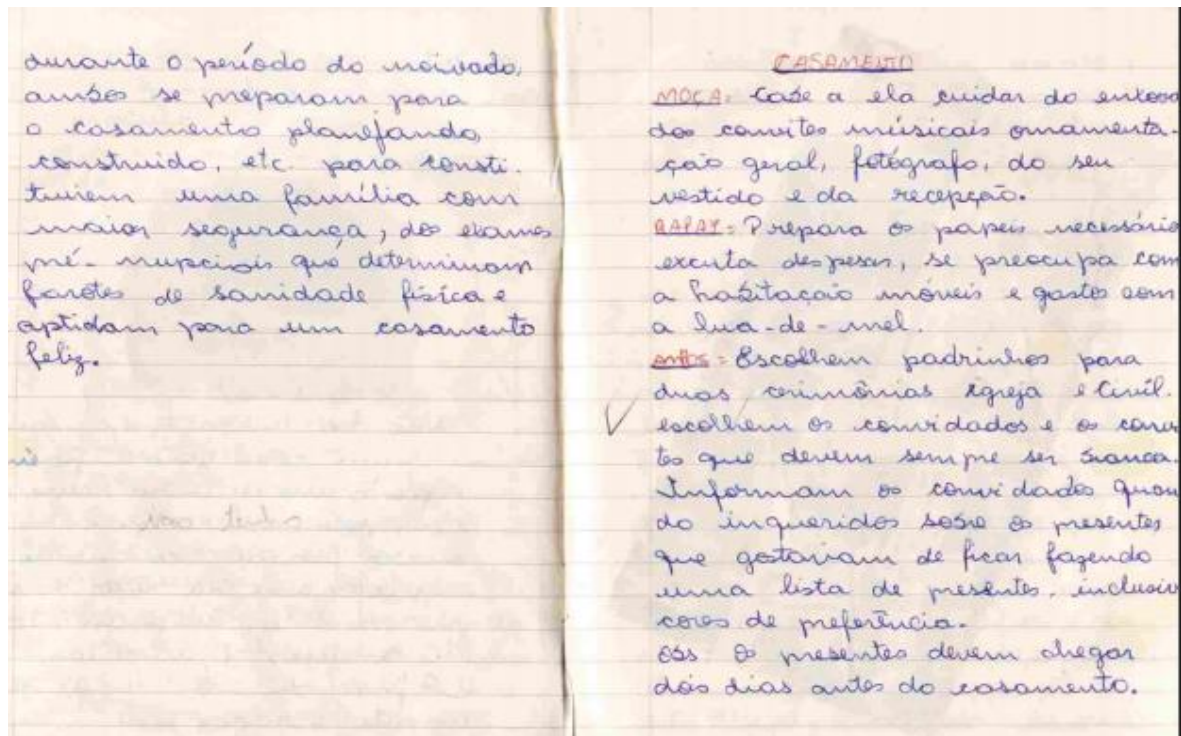 durante o período do noivado,
ambos se preparam para
o casamento planejando,
construido, etc. para consti.
tuirem uma família com
maior segurança, dos exames
pré-nupciais que determinam
de sanidade física e
aptidam para um casamento
feliz.
CASAMENTO
MOÇA: Cabe a ela cuidar do
dos convites músicais ornamenta-
ção geral, fotógrafo, do seu
vestido e da recepção.
RAPAZ= Prepara os papeis necessário
excuta despesas, se preocupa com
a habitação móveis e gastos com
a lua-de-mel.
= Escolhem padrinhos para
duas cerimônias igreja e Civil.
escolhem os convidados e os convi
tes que devem sempre ser branca.
Informam os convidados quan
do inqueridos sobre os presentes
que gostariam de ficar fazendo
uma lista de presentes, inclusiv
cores de preferência.
OBS os presentes devem chegar
dois dias antes do casamento.